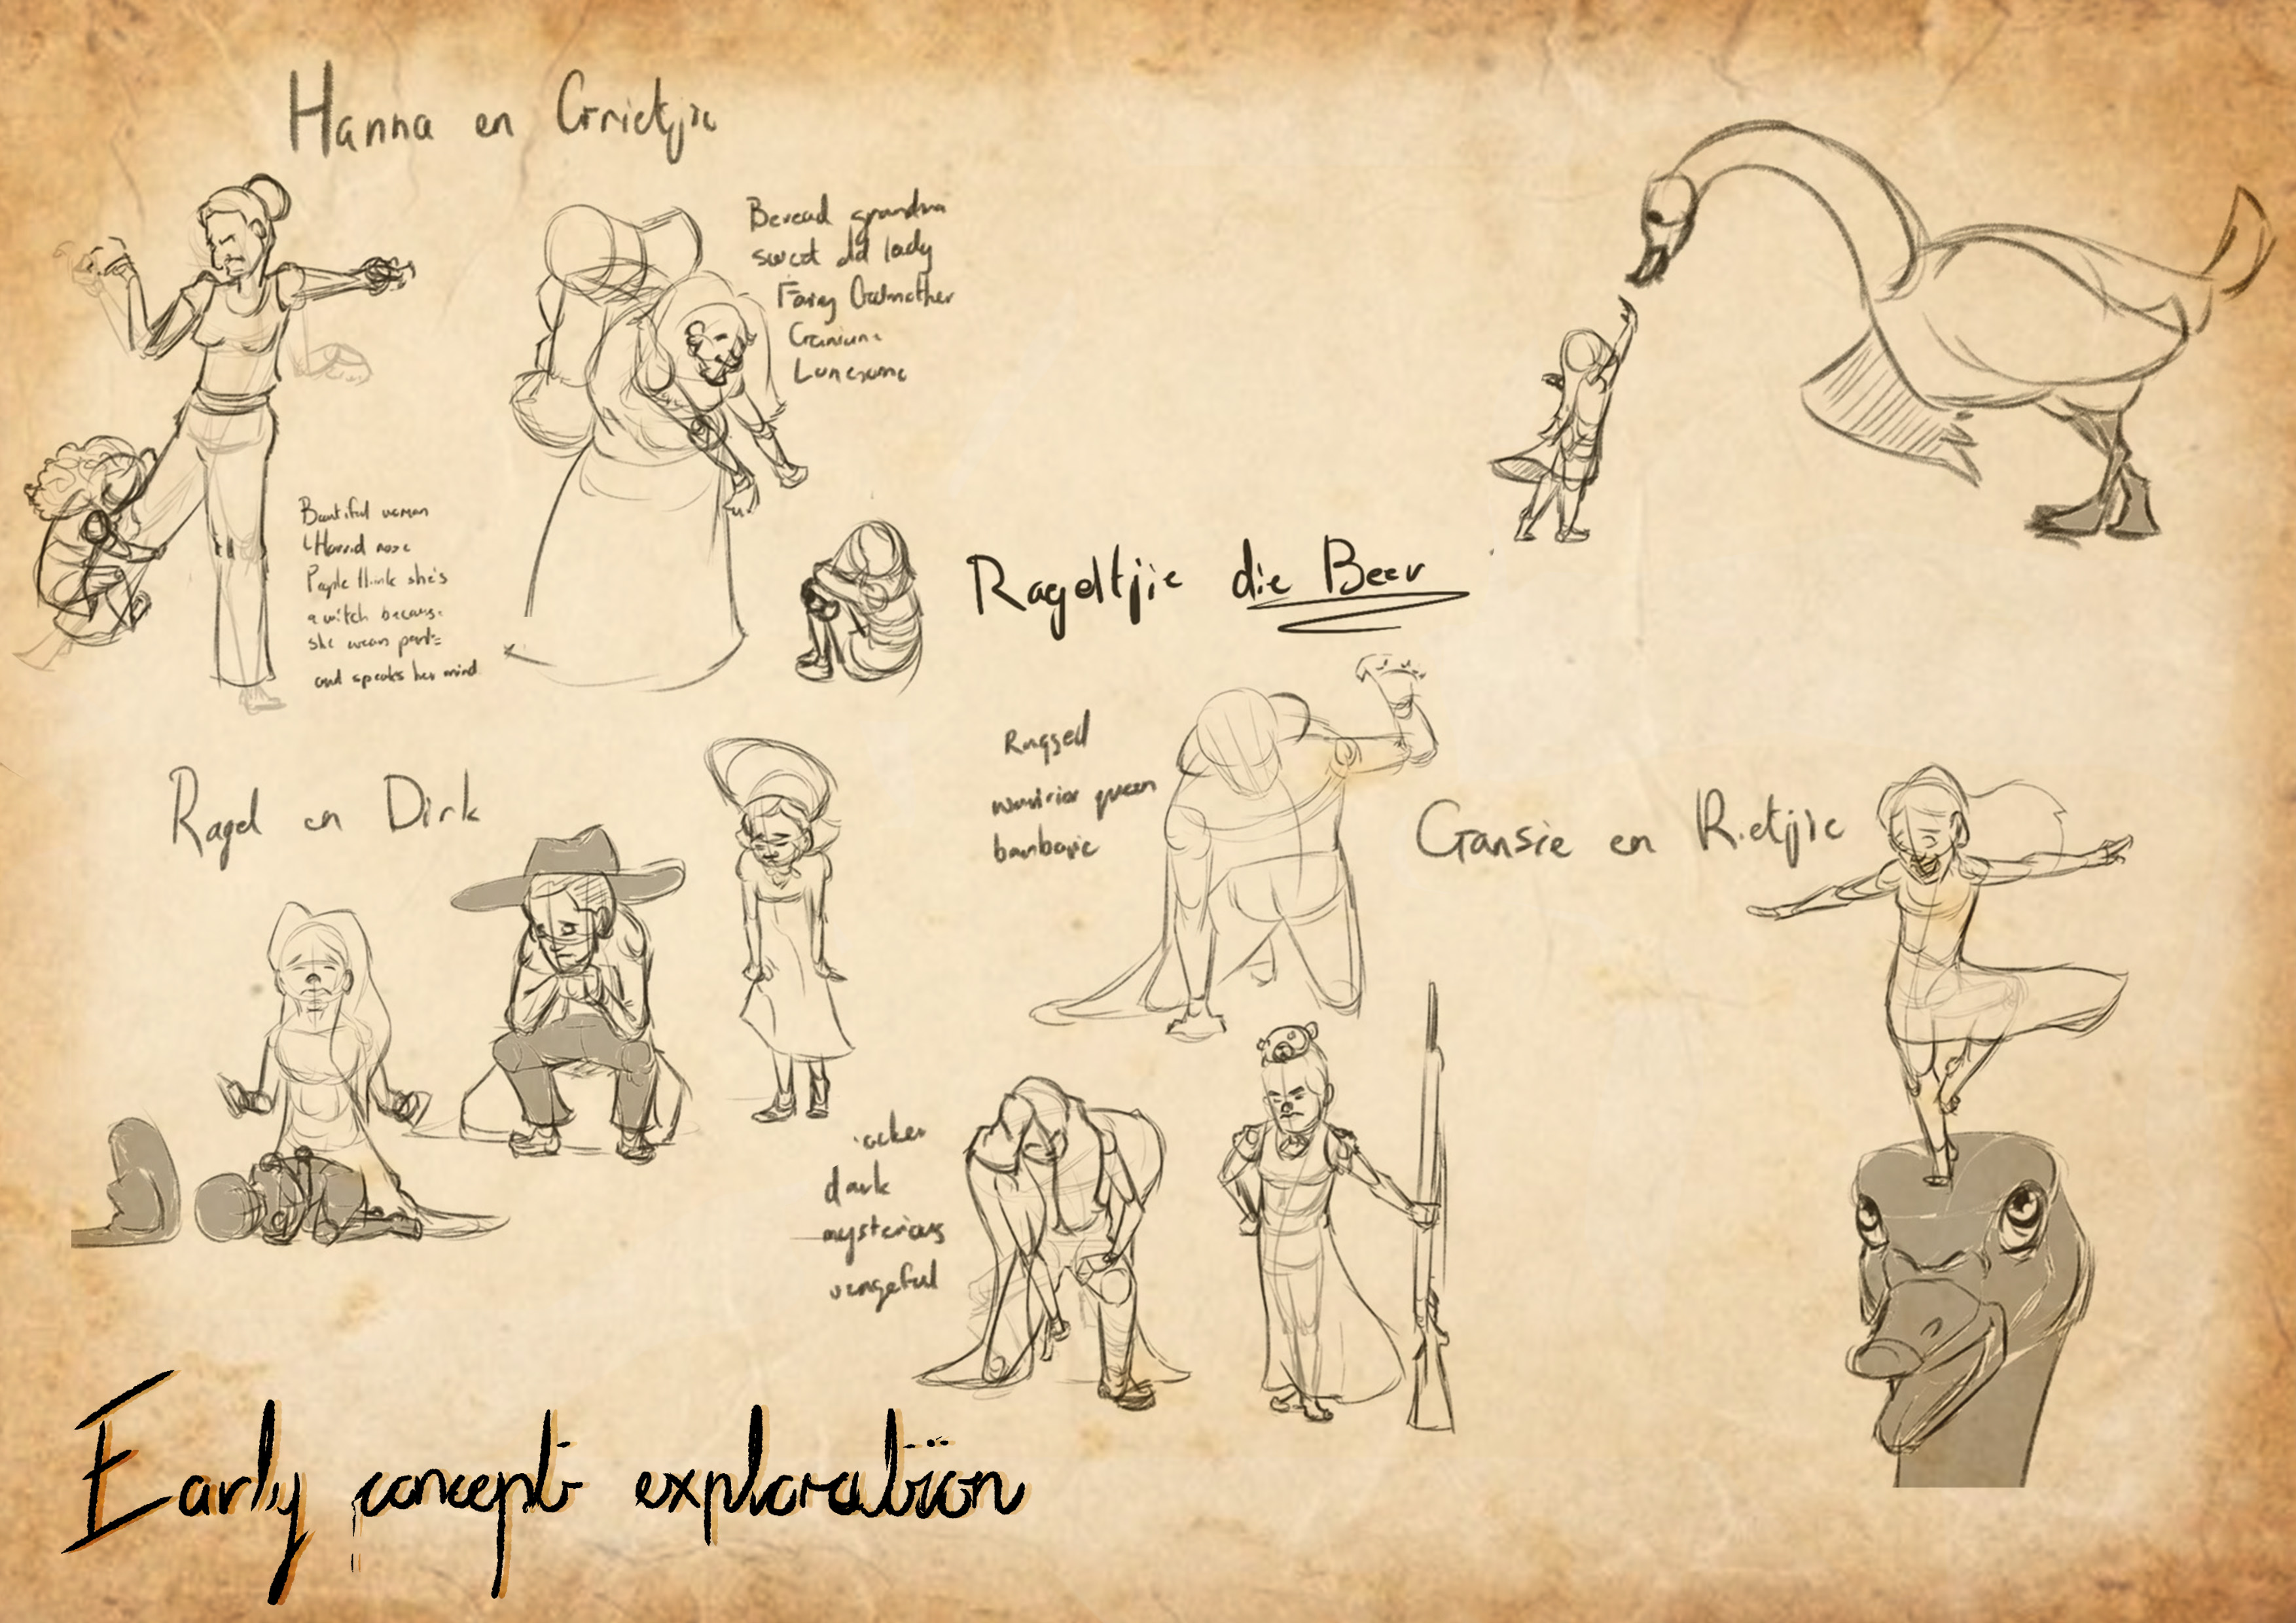 Hanna en Grietjie
Beread grandma
sweet old lady
Fairy Godmother
Lonesome
Beautiful woman
Horrid nose
People think she's
a witch because
she wears pants
and speaks her mind
Rageltjie die Beer
Rugged
warrior queen
barbaric
Ragel en Dirk
Gansie en Rietjie
dark
mysterious
vengeful
Early concept exploration